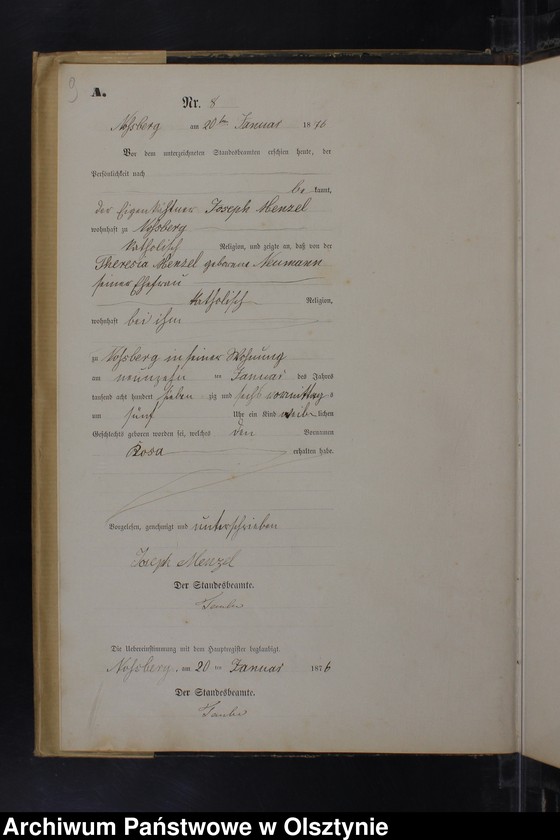 9
A.
Nr. 8
Nossberg am 20ten Januar 1876
Vor dem unterzeichneten Standesbeamten erschien heute, der
Persönlichkeit nach
be kannt,
der Eigenkäthner Joseph Menzel
wohnhaft zu Nossberg
katholisch Religion, und zeigte an, daß von der
Theresia Menzel geborene Neumann
seiner Ehefrau
katholisch Religion,
wohnhaft bei ihm
zu Nossberg in seiner Wohnung
am neunzehn ten Januar des Jahres
tausend acht hundert sieben zig und sechs vormittag s
um fünf Uhr ein Kind weib lichen
Geschlechts geboren worden sei, welches den Vornamen
Rosa erhalten habe.
Vorgelesen, genehmigt und unterschrieben
Joseph Menzel
Der Standesbeamte.
Die Uebereinstimmung mit dem Hauptregister beglaubigt.
Nossberg, am 20 ten Januar 1876
Der Standesbeamte.
Archiwum Państwowe w Olsztynie